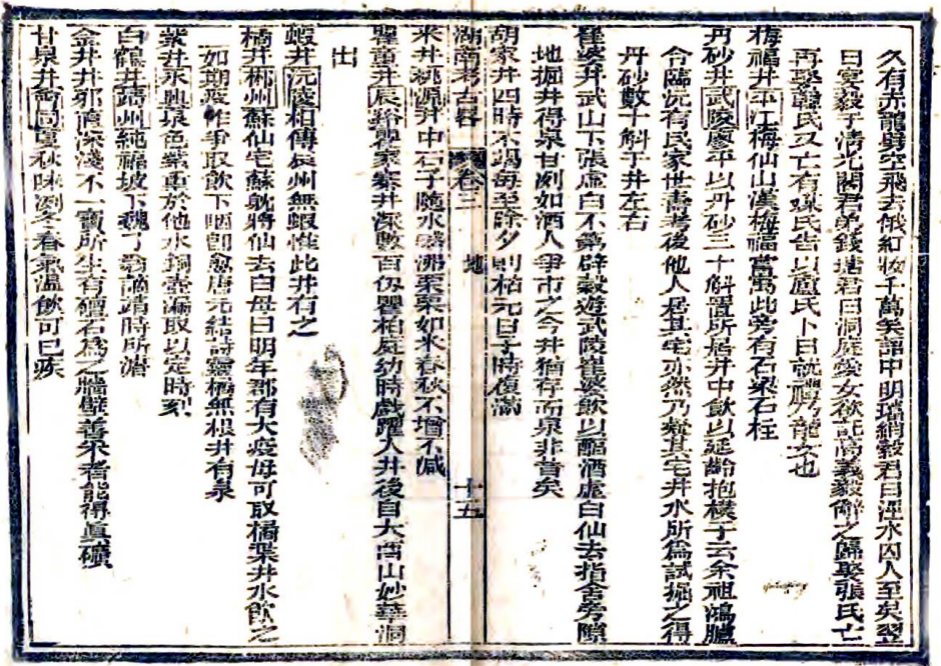 久有赤龍劈空飛去俄紅妝千萬笑語中明璫綃縠君曰涇水囚人至矣翌
日宴毅于淸光閣君弟錢塘君曰洞庭愛女欲託高義毅辭之歸娶張氏亡
再娶韓氏又亡有媒氏告以盧氏卜日就禮乃龍女也
梅福井平江梅仙山漢梅福嘗寓此旁有石梁石柱
丹砂井武陵廖平以丹砂三十斛置所居井中飲以延齡抱樸子云余祖鴻臚
令臨沅有民家世壽考後他人居其宅亦然乃疑其宅井水所爲試掘之得
丹砂數十斛于井左右
崔婆井武山下張虛白不第辟穀遊武陵崔婆飲以醞酒虛白仙去指舍旁隙
地掘井得泉甘冽如酒人爭市之今井猶存而泉非昔矣
胡家井四時不竭每至除夕則枯元日子時復滿
湖南考古畧 卷三 地 十五
米井桃源井中石子隨水噴沸粟粟如米春秋不增不減
瞿童井辰谿瞿家寨井深數百仭瞿柏庭幼時戲躍入井後自大酉山妙華洞
出
蝦井沅陵相傳辰州無蝦惟此井有之
橘井郴州蘇仙宅蘇躭將仙去白母曰明年郡有大疫母可取橘葉井水飲之
如期疫作爭取飲下咽卽愈唐元結詩靈橘無根井有泉
紫井永興泉色紫重於他水銅壺漏取以定時刻
白鶴井靖州純福坡下魏了翁謫靖時所濬
金井井邪直深淺不一寶所生有礓石爲之牆壁善采者能得眞礦
甘泉井 同夏秋味冽冬春氣溫飲可已疾